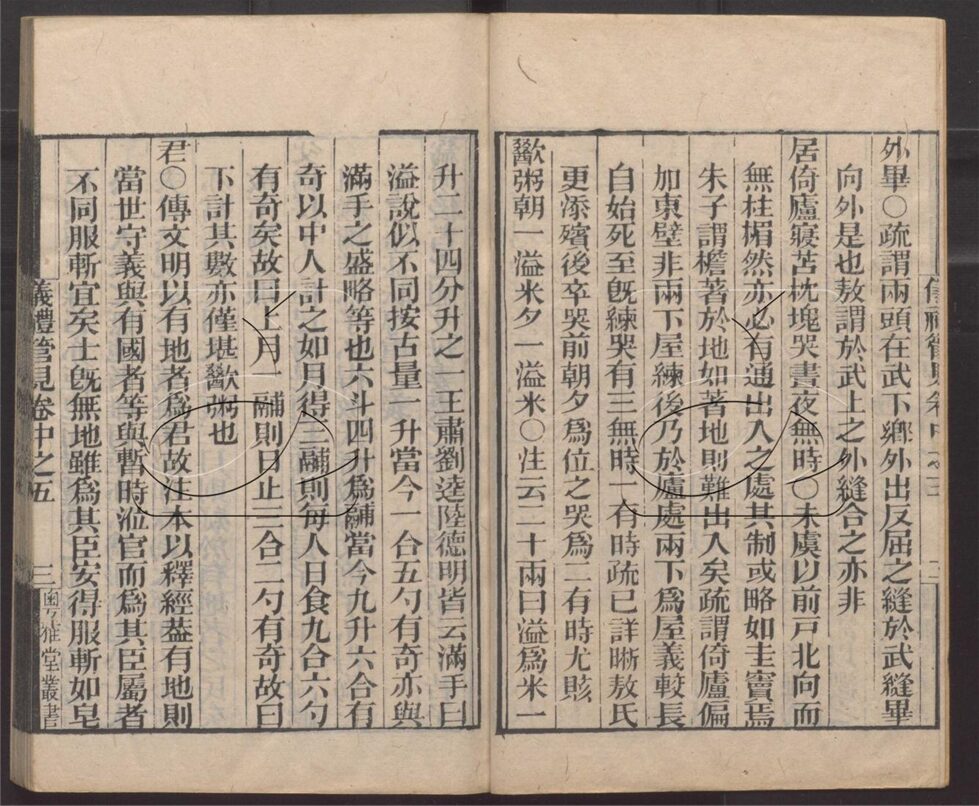 外畢○疏謂兩頭在武下鄉外出反屈之縫於武縫畢
向外是也敖謂於武上之外縫合之亦非
居倚廬寢苫枕塊哭晝夜無時○未虞以前戸北向而
無柱楣然亦必有通出入之處其制或略如圭竇焉
朱子謂檐著於地如著地則難出入矣疏謂倚廬偏
加東壁非兩下屋練後乃於廬處兩下爲屋義較長
自始死至旣練哭有三無時一有時疏已詳晰敖氏
更添殯後卒哭前朝夕爲位之哭爲二有時尤賅
歠粥朝一溢米夕一溢米○注云二十兩曰溢爲米一
升二十四分升之一王肅劉逵陸德明皆云滿手曰
溢說似不同按古量一升當今一合五勺有奇亦與
滿手之盛略等也六斗四升爲鬴當今九升六合有
奇以中人計之如月得三鬴則每人日食九合六勺
有奇矣故曰上月一鬴則日止三合二勺有奇故曰
下計其數亦僅堪歠粥也
君○傳文明以有地者爲君故注本以釋經葢有地則
當世守義與有國者等與暫時涖官而爲其臣屬者
不同服斬宜矣士旣無地雖爲其臣安得服斬如皂
義禮管見卷中之五
三
粤雅堂叢書